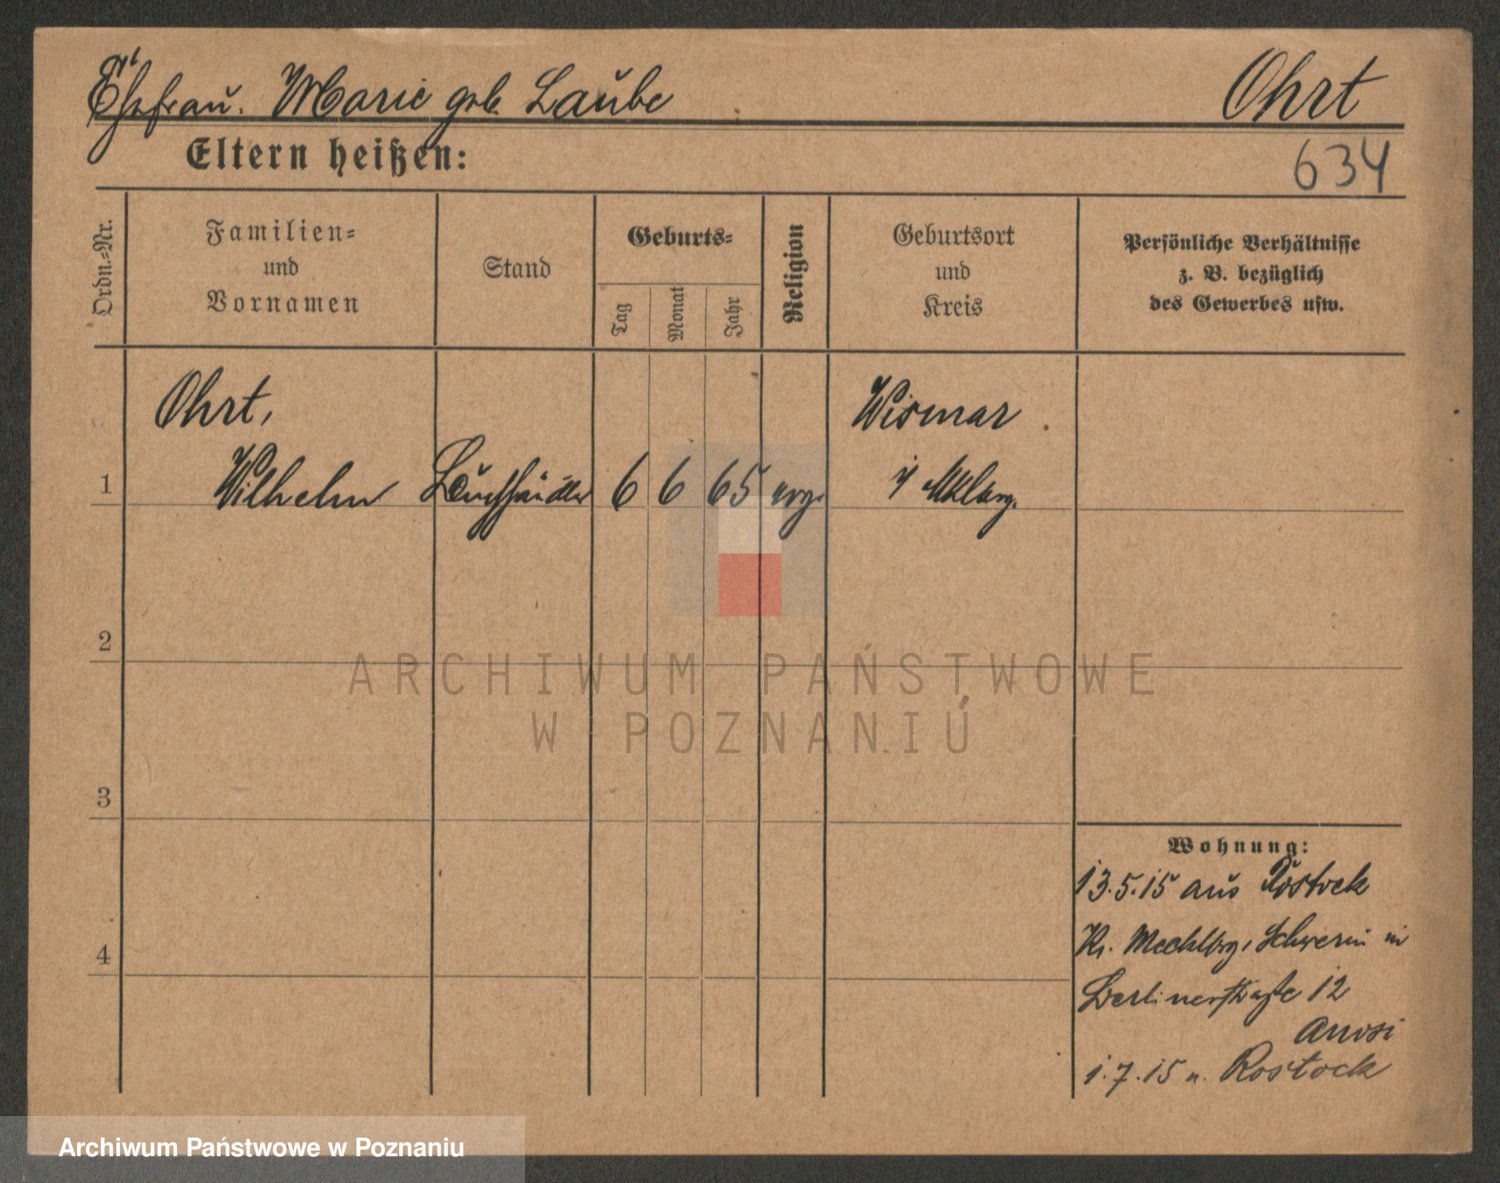 Ehefrau. Marie geb. Laube
Ohrt
Eltern heißen:
634
Ordn.-Nr.
Familien-
und
Vornamen
Stand
Geburts-
Tag
Monat
Jahr
Religion
Geburtsort
und
Kreis
Persönliche Verhältnisse
z. B. bezüglich
des Gewerbes usw.
Ohrt,
Wilhelm
6 6 65 evgl.
Wismar
i/ Mklbrg.
1
2
3
4
ARCHIWUM PAŃSTWOWE
W POZNANIU
Wohnung:
13.5.15 aus Rostock
Kr. Mecklbrg. Schwerin in
Berlinerstraße 12
1.7.15 n. Rostock
Archiwum Państwowe w Poznaniu